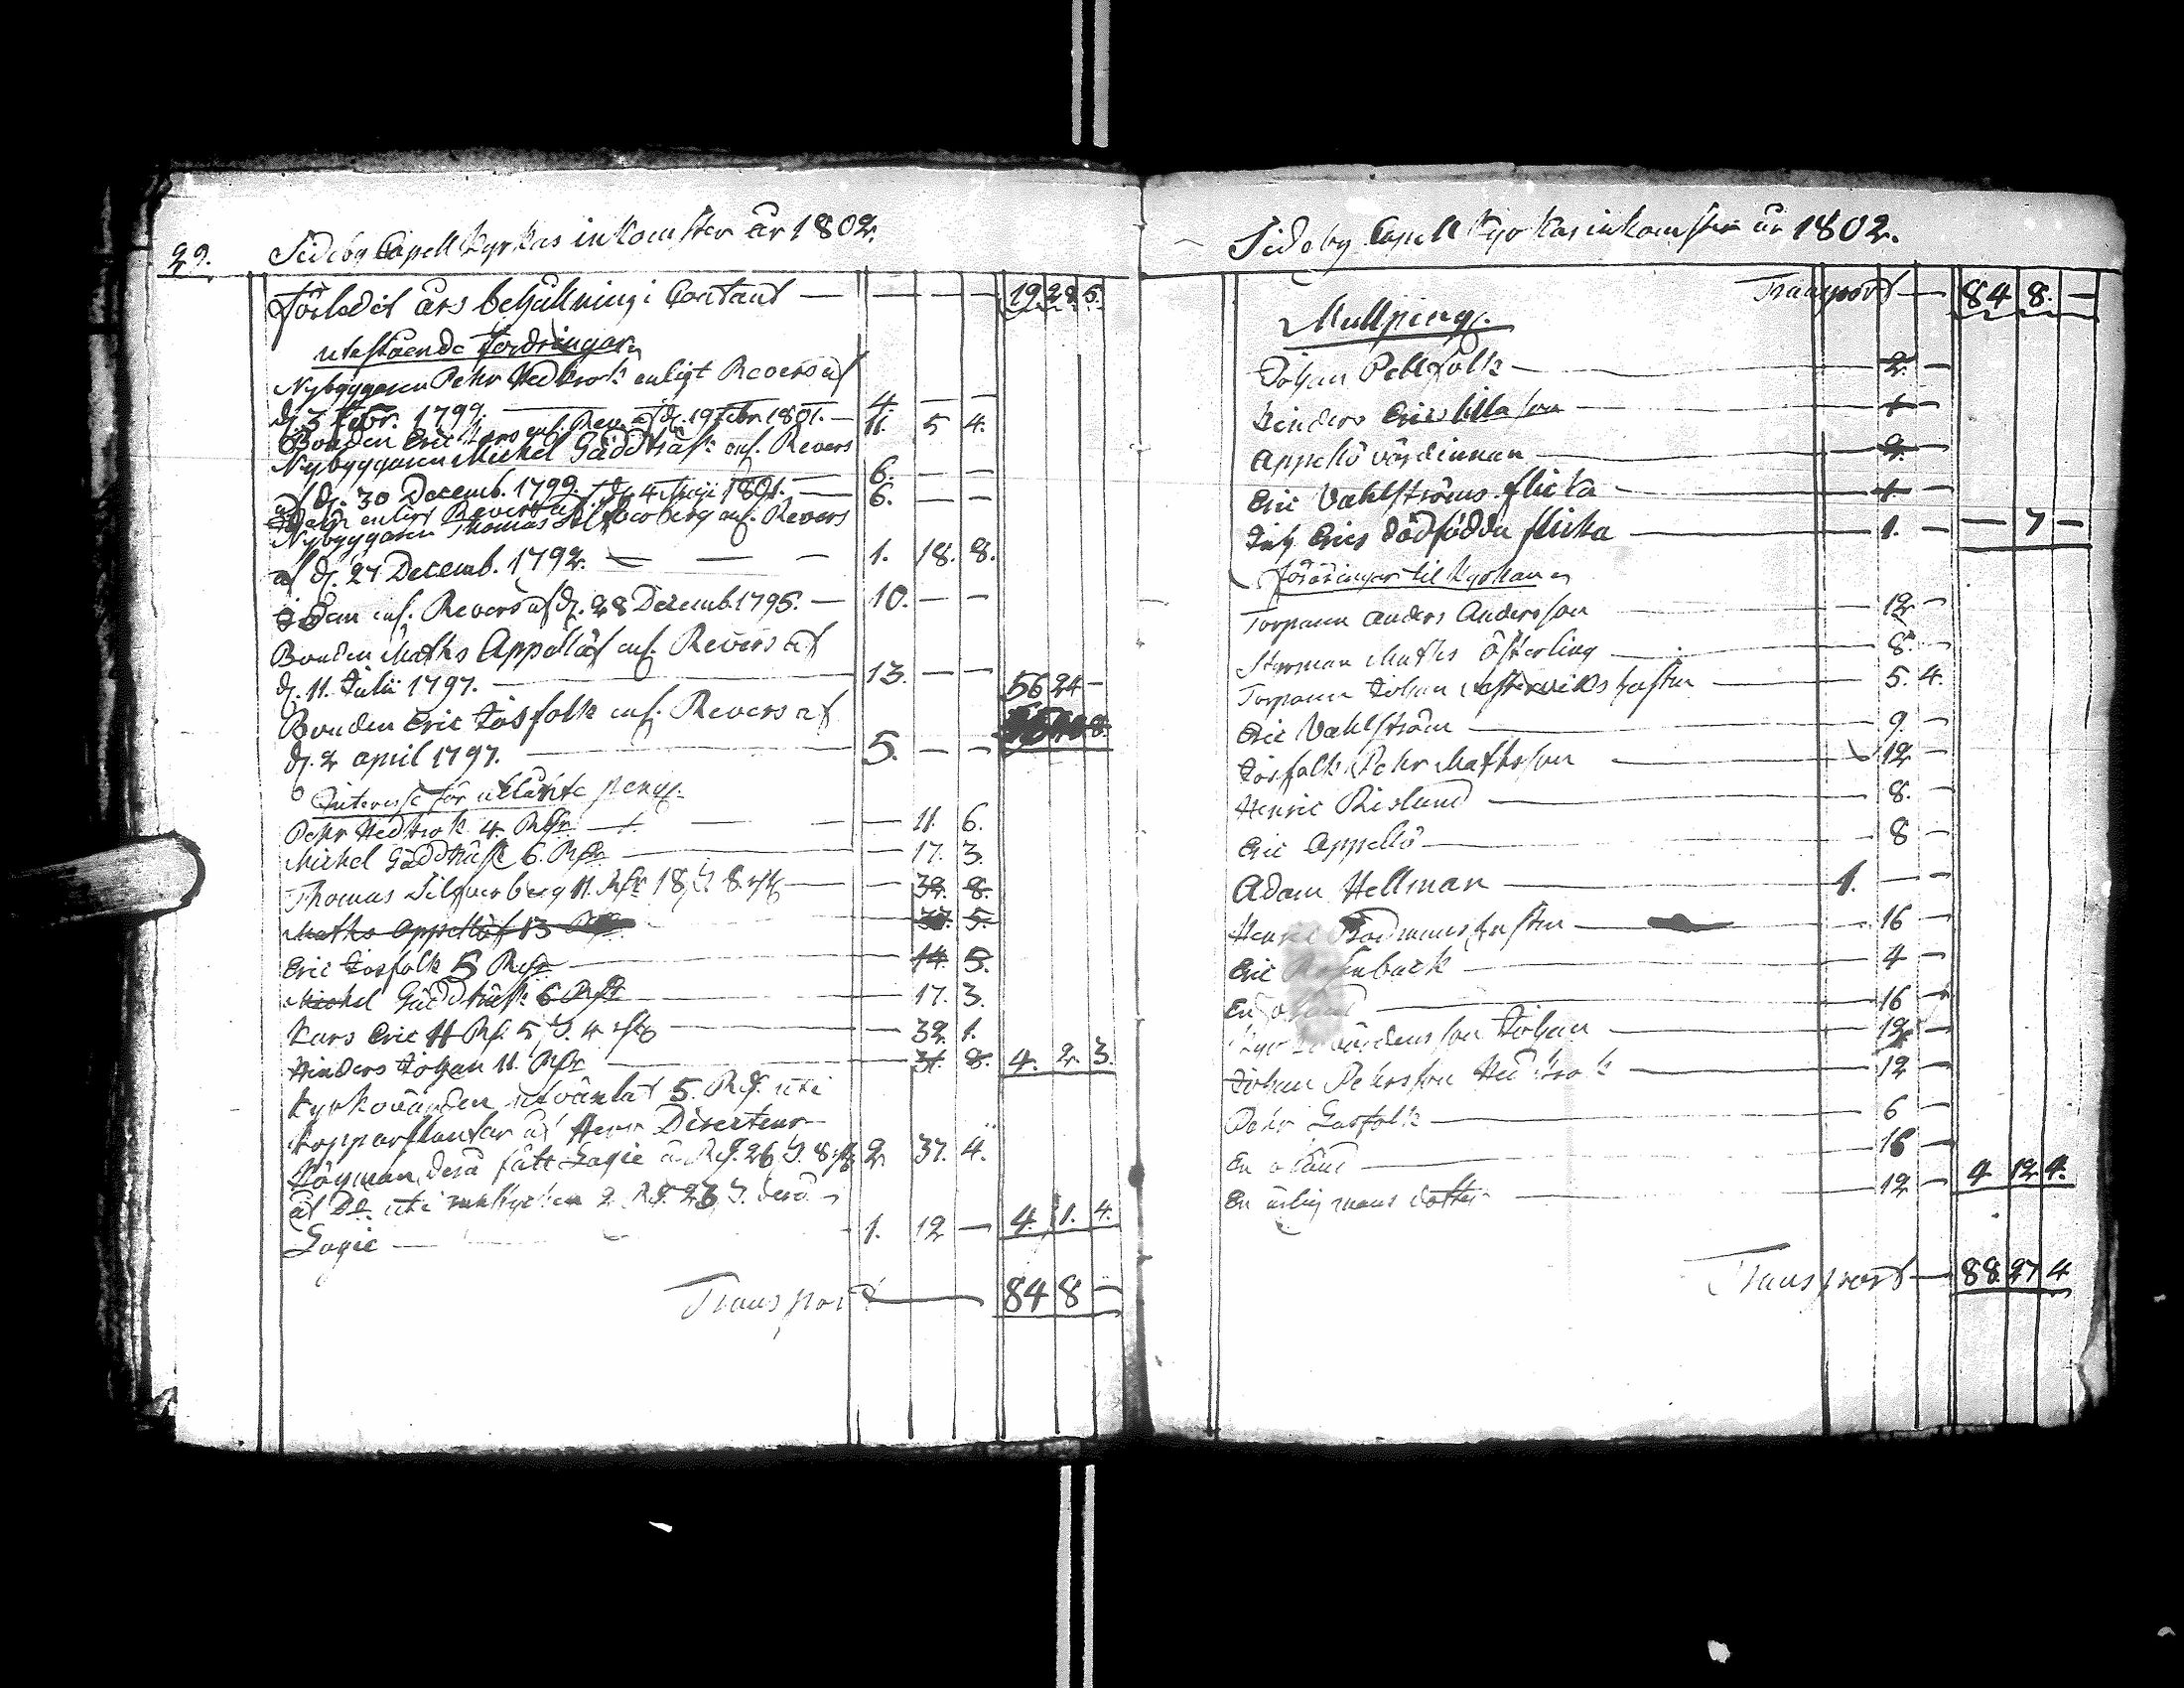 29. Sideby Capell Kyrkas inkomster år 1802.
Förledit års behållning i Contant — — — — 19. 28. 5.
utestående fordringar
Nybyggaren Pehr Hedkrok enligt Revers af
dj. 3 Febr. 1799. — 4 — —
Bonden Eric Lars enl. Rev. af dj. 19 Febr. 1801. — 11. 5 4.
Nybyggaren Michel Gäddträsk enl. Revers
af dj. 30 Decemb. 1799. — 6. — —
Revers af dj. 4 Maji 1801. — 6. — —
Nybyggaren Thomas Silfverberg enl. Revers
af dj. 27 Decemb. 1792. — — — 1. 18. 8.
enl. Revers af dj. 28 Decemb. 1795. — 10. — —
Bonden Maths Appellöf enl. Revers af
dj. 11. Julii 1797. — 13. — — 56 24 —
Bonden Eric Josfolk enl. Revers af
dj. 2 april 1797. — 5. — —
Interesse för utlånte peng.
Pehr Hedkrok 4. Rdr — — — 11. 6.
Michel Gäddträsk 6. Rdr — — 17. 3.
Thomas Silfverberg 11. Rdr 18 s. 8. — — 32. 8.
Maths Appellöf 13 5.
Eric Josfolk 5 Rdr — 14. 5.
Michel Gäddträsk 6 Rdr — 17. 3.
Lars Eric 11 Rd. 5 s. 4 — — 32. 1.
Hinders Johan 11. Rdr — — 31. 8. 4. 2. 3.
Kyrkovärden 5. Rd. uti
Herr Directeur
fått Lagie à Rd. 26 s. 8 2 37. 4.
åt Do. uti 2 Rd. 23 s.
Lagie — 1. 12 — 4. 1. 4.
Transport — 84 8 —
Sideby Capell Kyrkas inkomster år 1802.
Transport — 84 8. —
Mullpeng.
Johan Pellfolk — 2. —
Hinders Erics lilla son — 1 —
Appellö värdinnan — 2. —
Eric Vahlströms flicka — 1. —
Erics dödfödda flicka — 1. — — 7 —
föräringar til Kyrkan
Torparen Anders Andersson — 12 —
Styrman Maths Österling — 8. —
Torparen Johan hustru — 5. 4.
Eric Vahlström — 9. —
Josfolk Pehr Mathsson — 12 —
Henric Rislund — 8. —
Eric Appellö — 8 —
Adam Hellman — 1. — —
hustru — 16 —
Eric — 4 —
En okänd — 16 —
son Johan — 12 —
Johan Pehrsson Hedkrok — 12 —
Pehr Lasfolk — 6 —
En okänd — 16 —
En ärlig mans dotter — 12 — 4 12 4.
Transport — 88. 27 4